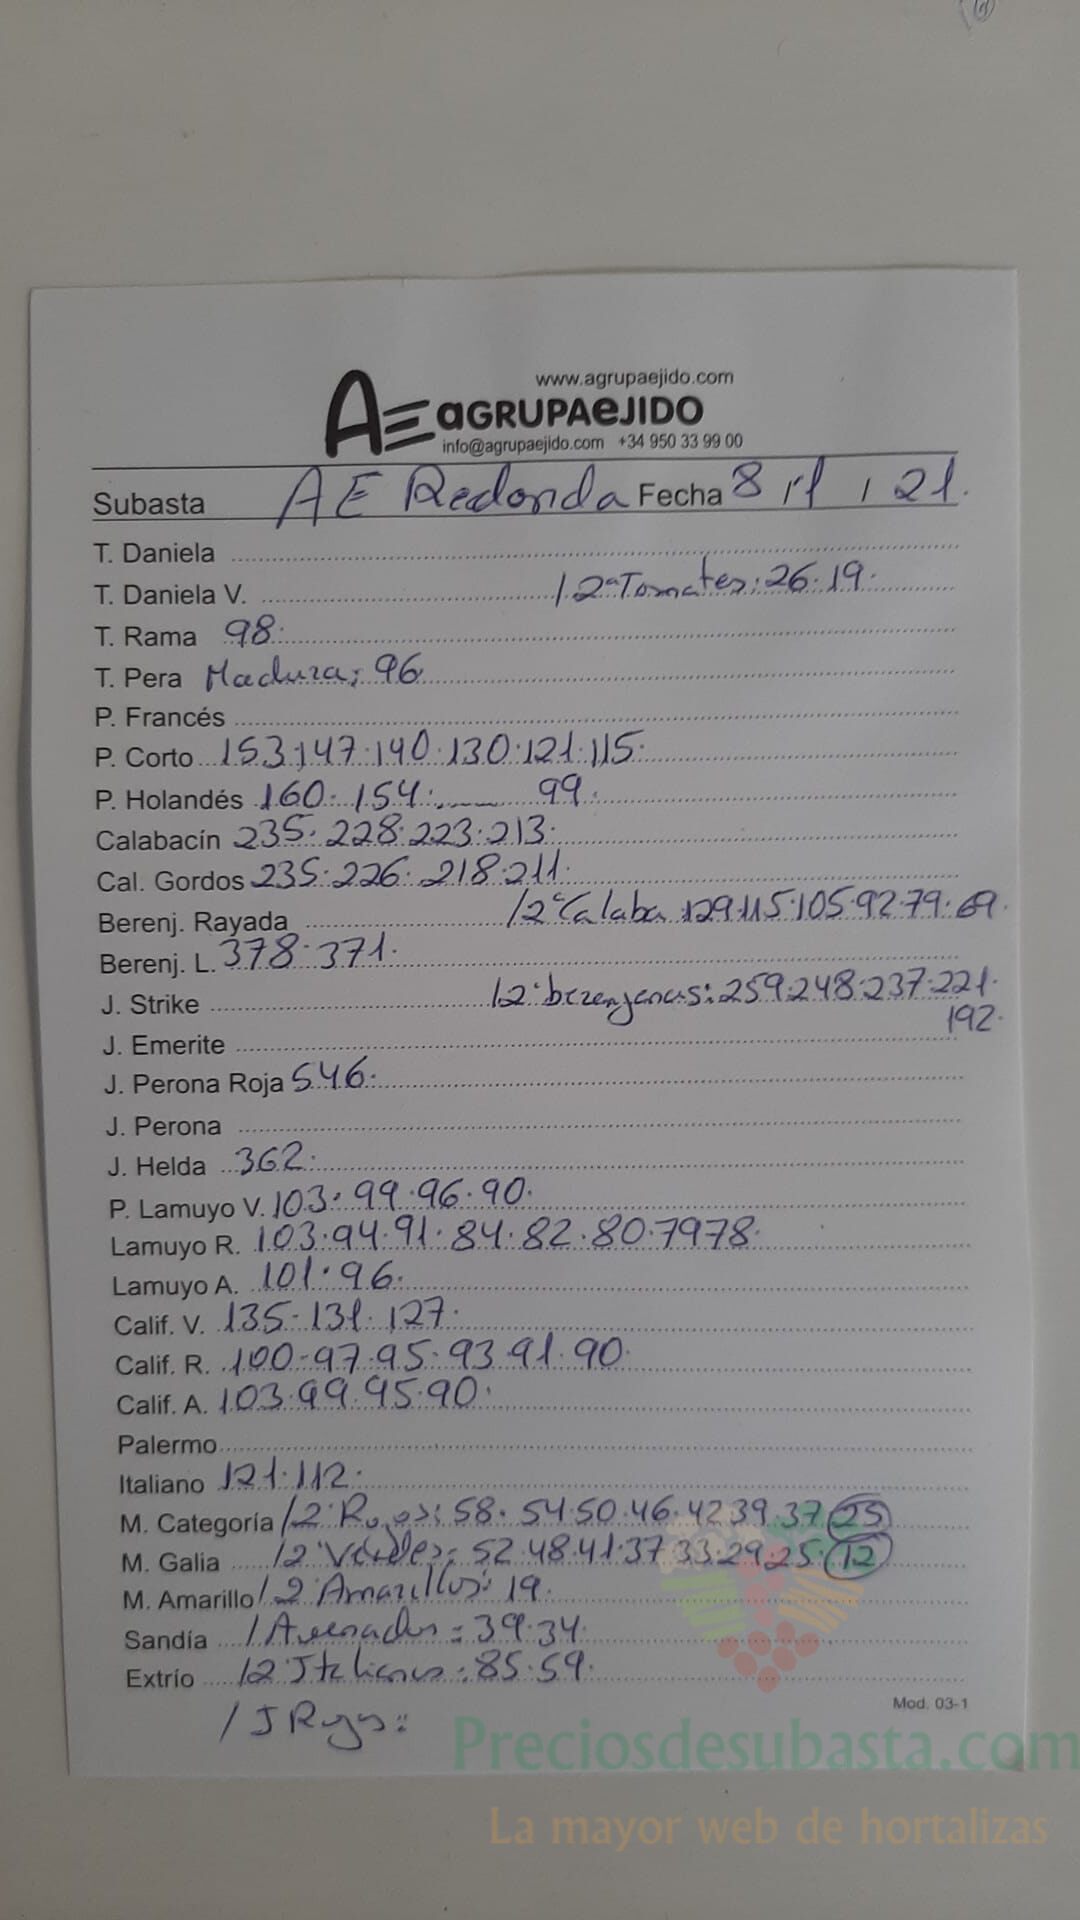 www.agrupaejido.com
AE aGRUPAeJIDO
info@agrupaejido.com +34 950 33 99 00
Subasta AE Redonda Fecha 8 / 1 / 21.
T. Daniela
T. Daniela V. / 2ª Tomates: 26.19.
T. Rama 98.
T. Pera Madura: 96
P. Francés
P. Corto 153.147.140.130.121.115.
P. Holandés 160. 154. 99.
Calabacín 235.228.223.213.
Cal. Gordos 235.226.218.211.
Berenj. Rayada / 2ª Calaba 129.115.105.92.79.69.
Berenj. L. 378.371.
J. Strike / 2ª berenjenas: 259.248.237.221.
192.
J. Emerite
J. Perona Roja 546.
J. Perona
J. Helda 362.
P. Lamuyo V. 103.99.96.90.
Lamuyo R. 103.94.91.84.82.80.7978.
Lamuyo A. 101.96.
Calif. V. 135.131.127.
Calif. R. 100-97.95.93.91.90.
Calif. A. 103.99.95.90.
Palermo
Italiano 121.112.
M. Categoría / 2ª Rojos: 58.54.50.46.42 39.37 25
M. Galia / 2ª Verdes: 52.48.41.37.33.29.25.12
M. Amarillo / 2ª Amarillos: 19.
Sandía / Asurcados: 39.34.
Extrío / 2ª Italianos: 85.59.
/ J Rojos:
Mod. 03-1
Preciosdesubasta.com
La mayor web de hortalizas